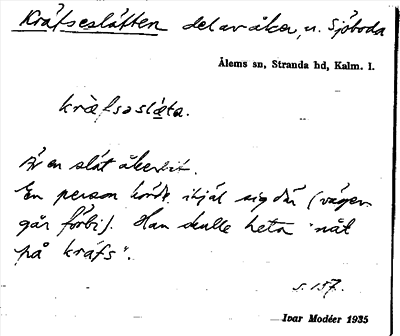 Kräfseslätten del av åker, n. Sjöboda
Ålems sn, Stranda hd, Kalm. l.
kræ̀fsəslæ̀ta.
Är en slät åkerbit.
En person körde ihjäl sig där (vägen
går förbi). Han skulle heta "nåt
på kräfs".
s. 157.
Ivar Modéer 1935